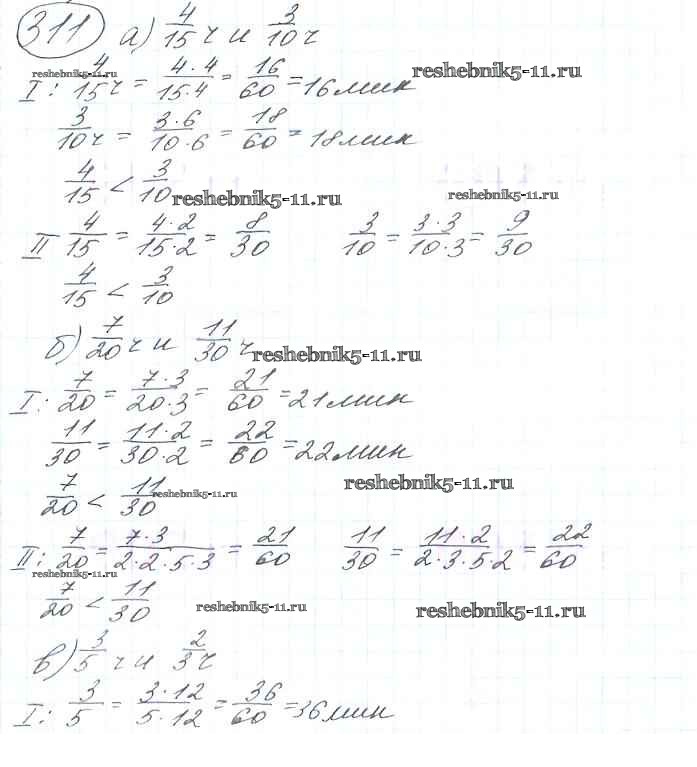 311 а) 4/15 ч и 3/10 ч
reshebnik5-11.ru
I: 4/15 ч = 4·4/15·4 = 16/60 = 16 мин reshebnik5-11.ru
3/10 ч = 3·6/10·6 = 18/60 = 18 мин
4/15 < 3/10 reshebnik5-11.ru reshebnik5-11.ru
II 4/15 = 4·2/15·2 = 8/30 3/10 = 3·3/10·3 = 9/30
4/15 < 3/10
б) 7/20 ч и 11/30 ч reshebnik5-11.ru
I: 7/20 = 7·3/20·3 = 21/60 = 21 мин
11/30 = 11·2/30·2 = 22/60 = 22 мин
7/20 < 11/30 reshebnik5-11.ru reshebnik5-11.ru
II: 7/20 = 7·3/2·2·5·3 = 21/60 11/30 = 11·2/2·3·5·2 = 22/60
reshebnik5-11.ru
7/20 < 11/30 reshebnik5-11.ru reshebnik5-11.ru
в) 3/5 ч и 2/3 ч
I: 3/5 = 3·12/5·12 = 36/60 = 36 мин